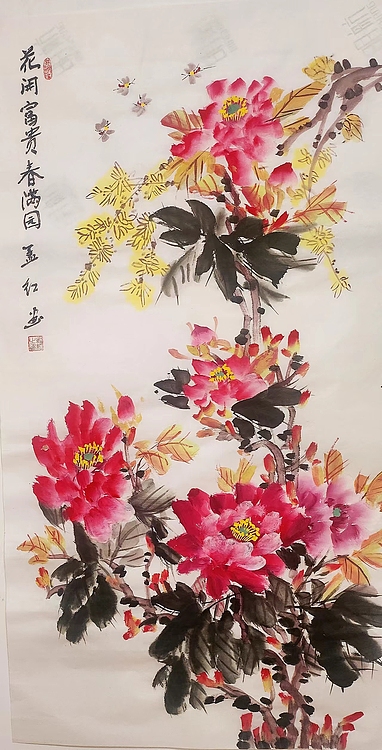 花开富贵春满园 孟红画